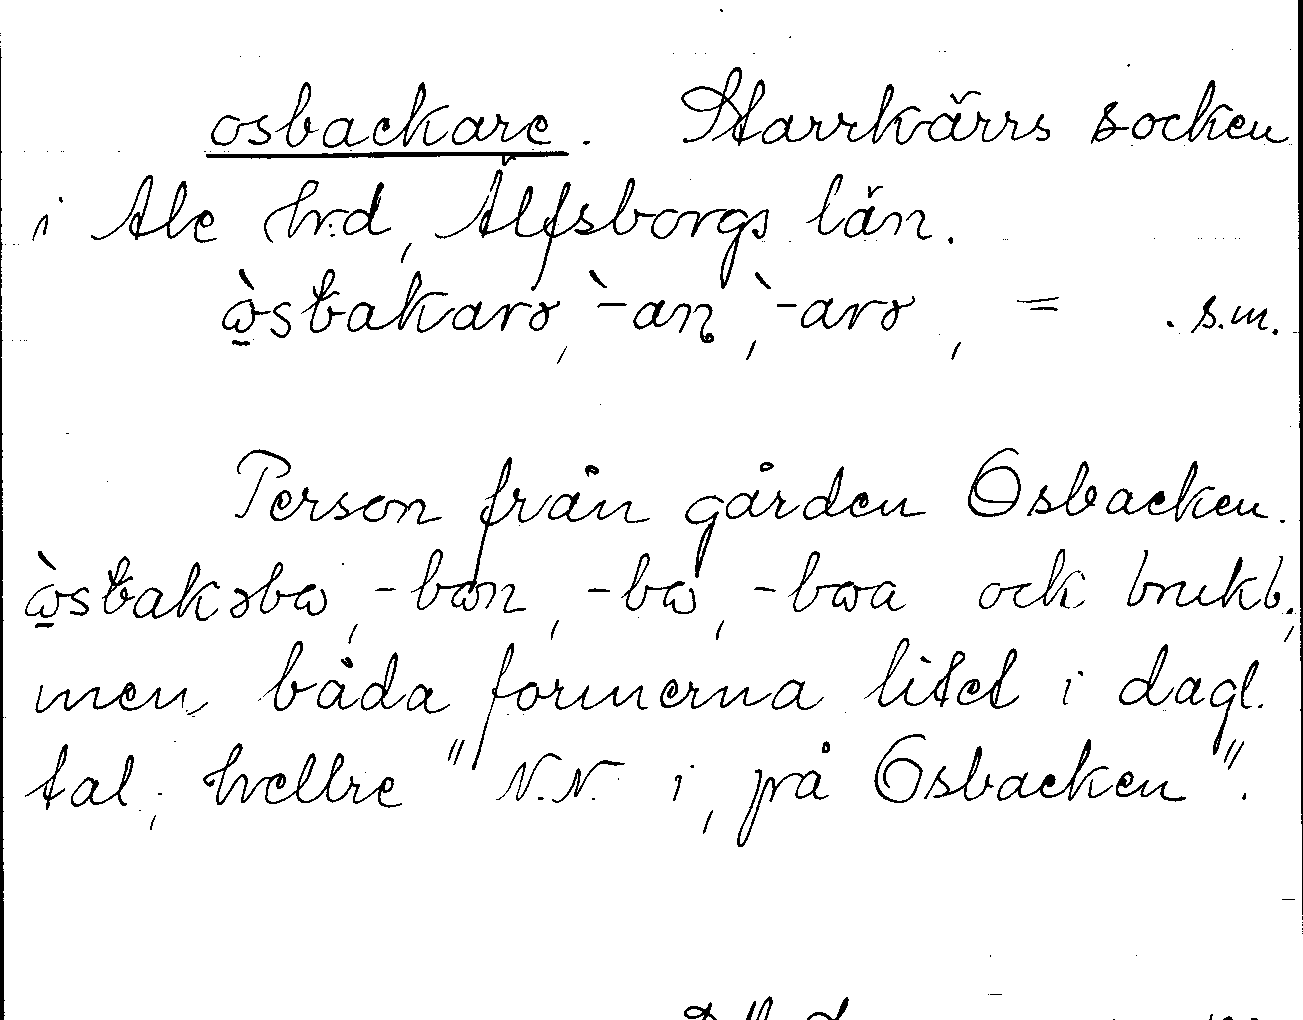 osbackare. Starrkärrs socken
i Ale hrd, Älfsborgs län.
ὼsbakarə, `-an, `-arə, = . s.m.
Person från gården Osbacken.
ὼsbakəbω, -bωn, -bω, -bωa ock brukb.,
men båda formerna litet i dagl.
tal; hellre "N.N. i, på Osbacken".